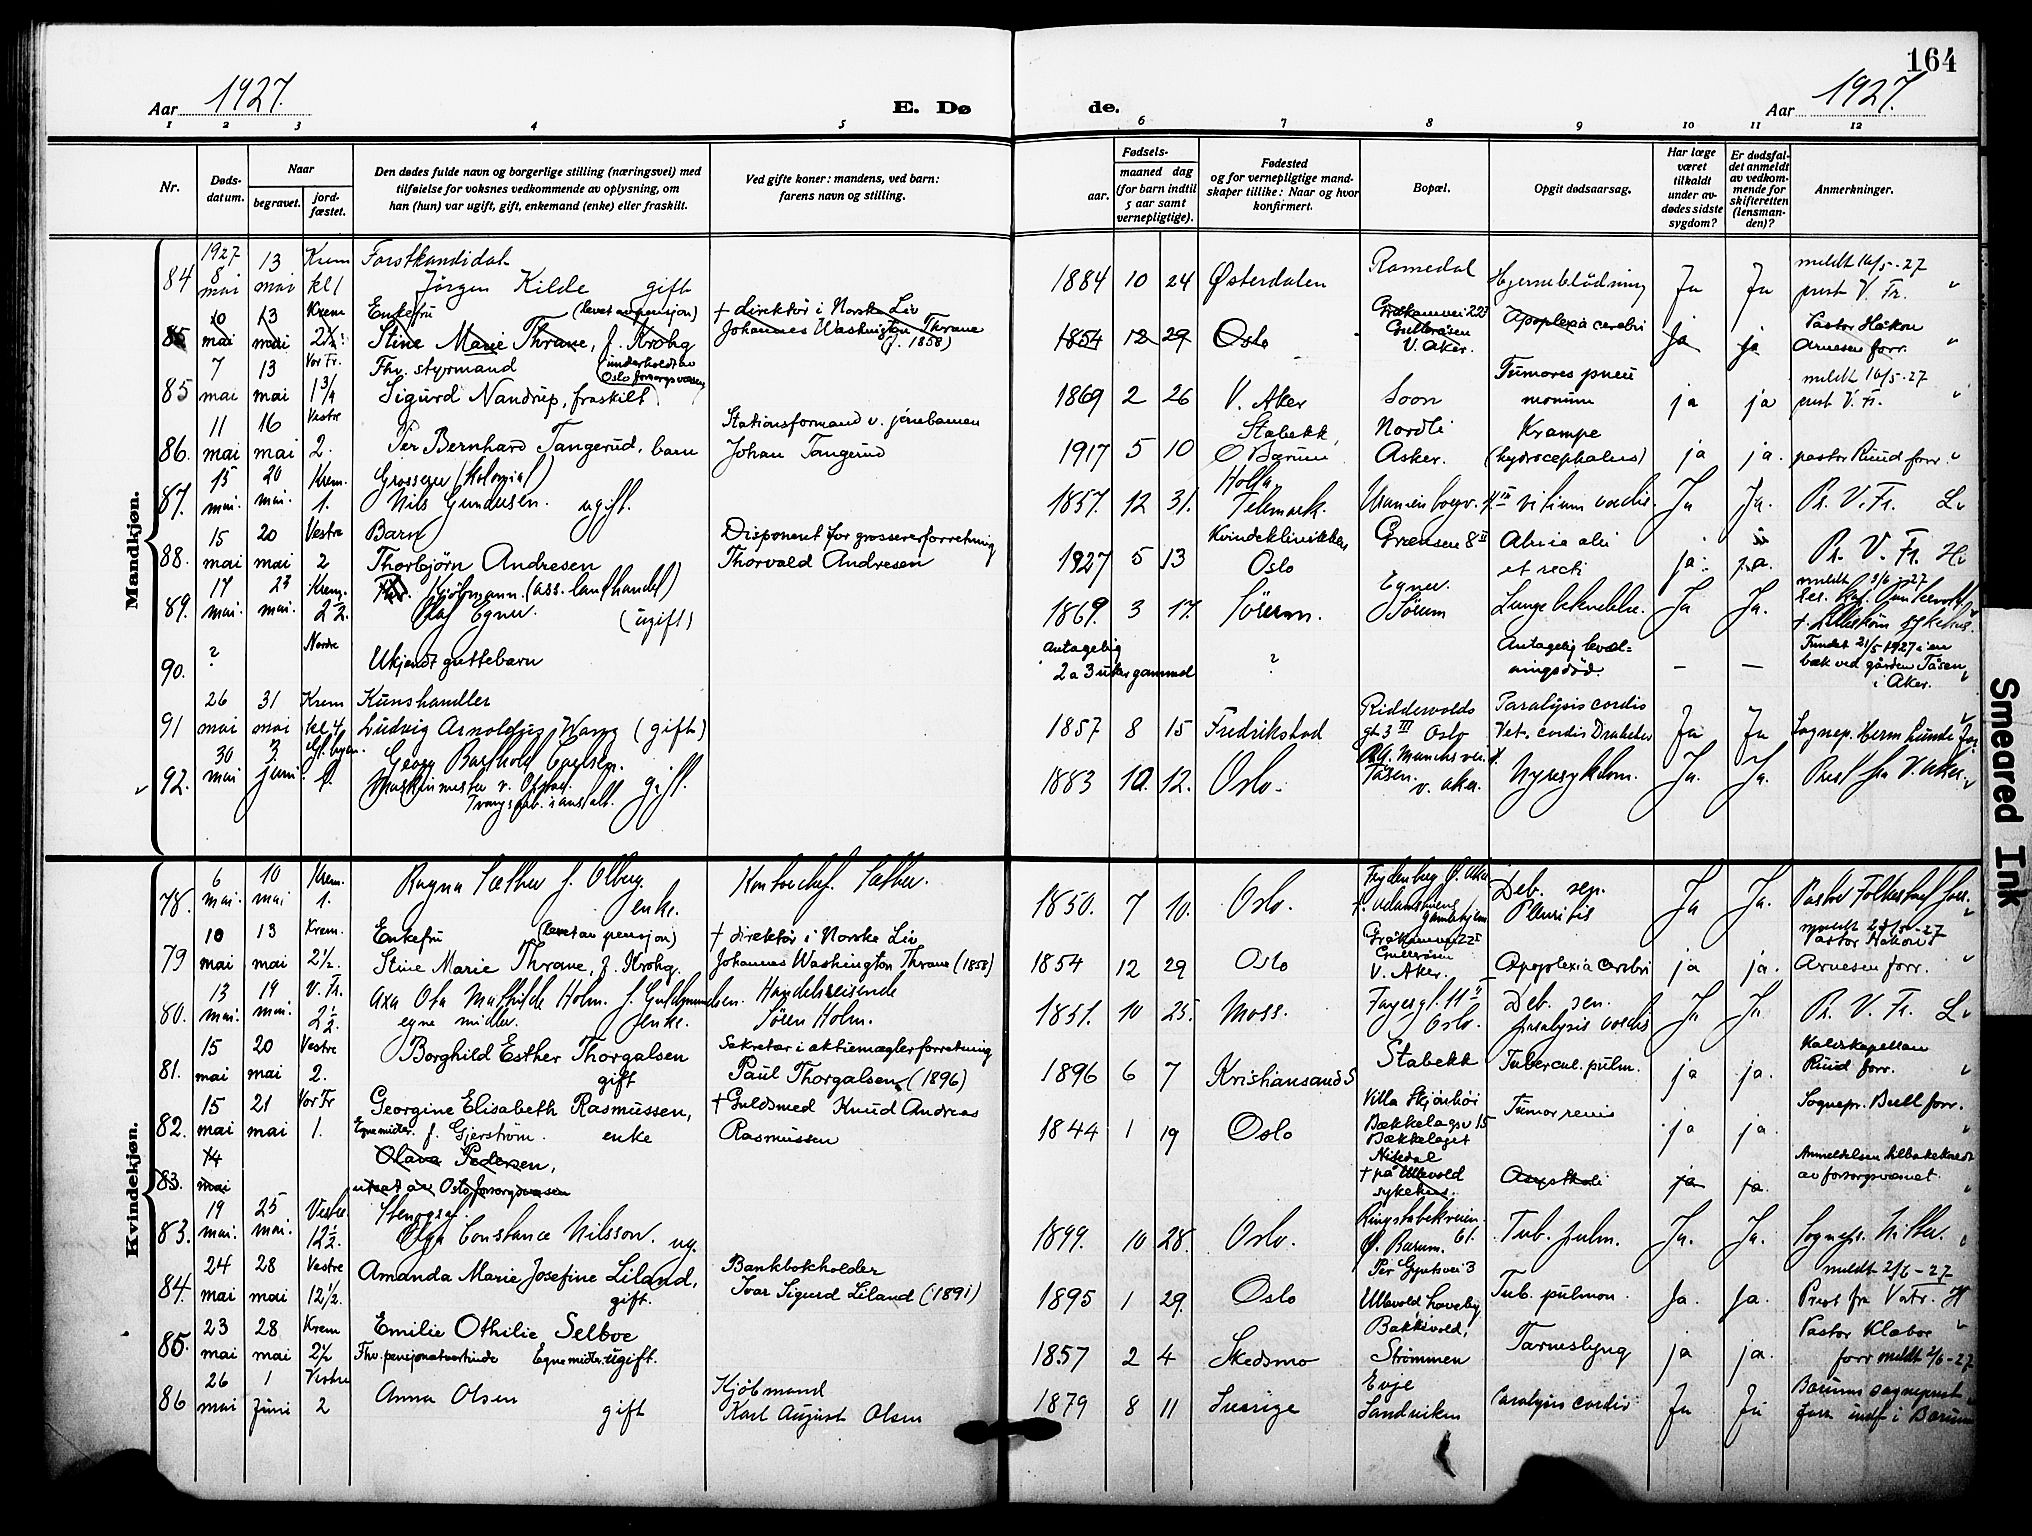 164
Aar 1927.
E. Dø
de.
Aar 1927.
1 2 3 4 5 6 7 8 9 10 11 12
Nr.
Døds-
datum.
Naar
begravet.
jord-
fæstet.
Den dødes fulde navn og borgerlige stilling (næringsvei) med
tilføielse for voksnes vedkommende av oplysning, om
han (hun) var ugift, gift, enkemand (enke) eller fraskilt.
Ved gifte koner: mandens, ved barn:
farens navn og stilling.
Fødsels-
aar.
maaned dag
(for barn indtil
5 aar samt
vernepligtige).
Fødested
og for vernepligtige mand-
skaper tillike: Naar og hvor
konfirmert.
Bopæl.
Opgit dødsaarsag.
Har læge
været
tilkaldt
under av-
dødes sidste
sygdom?
Er dødsfal-
det anmeldt
av vedkom-
mende for
skifteretten
(lensman-
den)?
Anmerkninger.
Mandkjøn.
1927 13 Krem Forstkandidat Romedal meldt 16/5-27
84 8 mai mai kl 1 Jörgen Kilde gift 1884 10 24 Østerdalen Hjerneblödning Ja Ja prest V. Fr. "
10 13 Krem Enkefru (levet av pensjon) + direktör i Norske Liv Gråkamvei 22 Apoplexia cerebri Pastor Håkon
85 mai mai 2½ Stine Marie Thrane, f. Krohg Johannes Washington Thrane (f. 1858) 1854 12 29 Oslo Gulleråsen V. Aker. ja ja Arnesen forr. "
7 13 Vor Fr. Fhv. styrmand (underholdt av Oslo forsorgsvæsen) Tumores pneu meldt 16/5-27
85 mai mai 1 3/4 Sigurd Nandrup, fraskilt 1869 2 26 V. Aker Soon monum ja ja prest V. Fr. "
11 16 Vestre Stationsformand v. jernbanen Stabekk, Nordli Krampe
86. mai mai 2. Per Bernhard Tangerud, barn Johan Tangerud 1917 5 10 Ö Bærum Asker. (hydrocephalus) ja ja. pastor Ruud forr. "
15 20 Krem. Grosserer (kolonial) Holla,
87. mai. mai. 1. Nils Gundersen. ugift. 1857. 12 31. Telemark. vitium cordis. Ja Ja. Pr. V. Fr. L.
15 20 Vestre Barn Disponent for grossererforretning Kvindeklinikken Grænsen 8 II
88. mai mai 2 Thorbjörn Andresen Thorvald Andresen 1927 5 13 Oslo et recti ja. ja. Pr. V. Fr. H.
17 23 Krem. Kjöbmann. (ass. landhandel) Egner. meldt 3/6-27
89. mai. mai. 2½. Olaf Egner. (ugift) 1869. 3 17. Sörum. Sörum Lungebetendelse. Ja. Ja. + Lilleström sykehus.
? Nordre antagelig Antagelig kvæl- Fundet 21/5 1927 i en
90. Ukjendt guttebarn 2 a 3 uker gammel ? ningsdöd. — — bæk ved gården Tåsen i Aker.
26 31 Krem Kunshandler Riddervolds Paralysis cordis
91 mai mai kl. 4 Ludvig Arnoldus (gift) 1857 8 15 Fredrikstad gt 3 III Oslo Ja Ja Sognep. Herm Lunde
30 3 Georg Barthold
92. mai juni 1. Maskinmester v. Opstad Tvangsarb.sanstalt. gift. 1883 10. 12. Oslo. Tåsen. v. aker. Nyresykdom. Ja. Ja. Prest fra V. Aker.
Kvindekjøn.
6 10 Krem. Ragna Sæther f. Olberg. Kontorchef. Sæther. Frydenberg Ö. Aker Deb. sen.
78. mai. mai 1. enke. 1850. 7 10. Oslo. gamlehjem Pleuritis Ja Ja. Pastor Folkestad forr.
10 13 Krem. Enkefru (levet av pensjon) + direktör i Norske Liv Gråkamvei 22 I Pastor Håkon
79 mai mai 2½. Stine Marie Thrane, f. Krohg. Johannes Washington Thrane (1858) 1854 12 29 Oslo Gulleråsen V. Aker. Apoplexia cerebri ja ja. Arnesen forr. "
13 19 V. Fr. Axa Ota Mathilde Holm. f. Guldmundsen. Handelsreisende Fayesgt. 11 II Deb. sen.
80. mai. mai. 2½. egne midler. enke. Sören Holm. 1851. 10 25. Moss. Oslo. paralysis cordis Ja Ja Pr. V. Fr. L.
15 20 Vestre Borghild Esther Thorgalsen Sekretær i aktiemæglerforretning Stabekk Tubercul. pulm. Kaldskapellan
81. mai mai 2. gift Paul Thorgalsen (1896) 1896 6 7 Kristiansand S ja ja. Ruud forr. "
15 21 Vor Fr Georgine Elisabeth Rasmussen, + Guldsmed Knud Andreas Villa Skjönhöi Tumor renis Sognepr. Bull forr.
82. mai mai 1. Egne midler. f. Gjerström. enke Rasmussen 1844 1 19 Oslo Bækkelagsv 15 Bækkelaget ja ja. "
14 Olava Pedersen, Nitedal Anmeldelsen tilbakekaldt
83. mai utsat av Oslo forsorgsvæsen + på Ullevold sykehus. ja ja. av forsorgsvæsenet. "
19 25 Vestre Stenograf. Ringstabekveien.
83. mai. mai. 12½. Olga Constance Nilsson. ug. 1899. 10 28. Oslo. 61. Ö. Bærum. Tub. pulm. Ja. Ja.
24 28 Vestre Amanda Marie Josefine Liland, Bankbokholder Per Gyntsvei 3 meldt 2/6-27
84. mai mai 12½. gift. Ivar Sigurd Liland (1891) 1895 1 29 Oslo Ullevold haveby Tub. pulmon. Ja. Ja. Prest fra V.Fr. H
23 28 Krem Emilie Othilie Selboe Bakkevold, Pastor Klaboe
85. mai mai 2½ Fhv. pensjonatvertinde Egne midler. ugift. 1857 2 4 Skedsmo Strömmen Tarmslyng ja ja. forr meldt 2/6-27
26 1 Vestre Anna Olsen Kjöbmand Evje Bærums sogneprest
86 mai Juni 2 gift Karl August Olsen 1879 8 11 Sverige Sandviken Paralysis cordis Ja Ja forr indf i Bærum
Smeared Ink